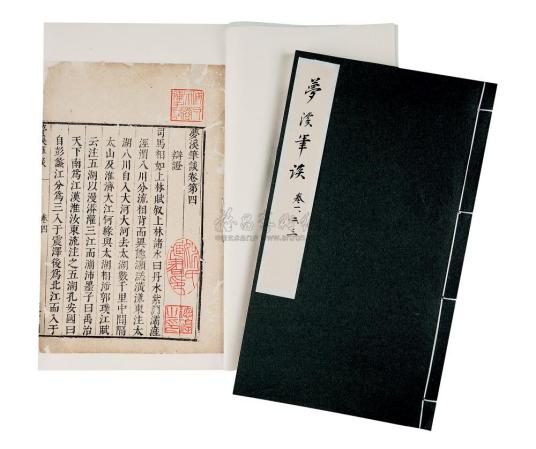 夢溪筆談卷第四
辯證
司馬相如上林賦敘上林諸水曰丹水紫淵灞滻
涇渭八川分流相背而異態灝溔潢漾東注太
湖八川自入大河大河去太湖數千里中間隔
太山及淮濟大江何緣與太湖相涉郭璞江賦
云注五湖以漫漭灌三江而漰沛墨子曰禹治
天下南爲江漢淮汝東流注之五湖孔安國曰
自彭蠡江分爲三入于震澤後爲北江而入于
夢溪筆談
卷四
夢溪筆談
卷一、二、三